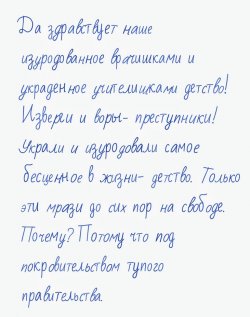 Да здравствует наше
изуродованное врачишками и
украденное учителишками детство!
Изверги и воры- преступники!
Украли и изуродовали самое
бесценное в жизни- детство. Только
эти мрази до сих пор на свободе.
Почему? Потому что под
покровительством тупого
правительства.